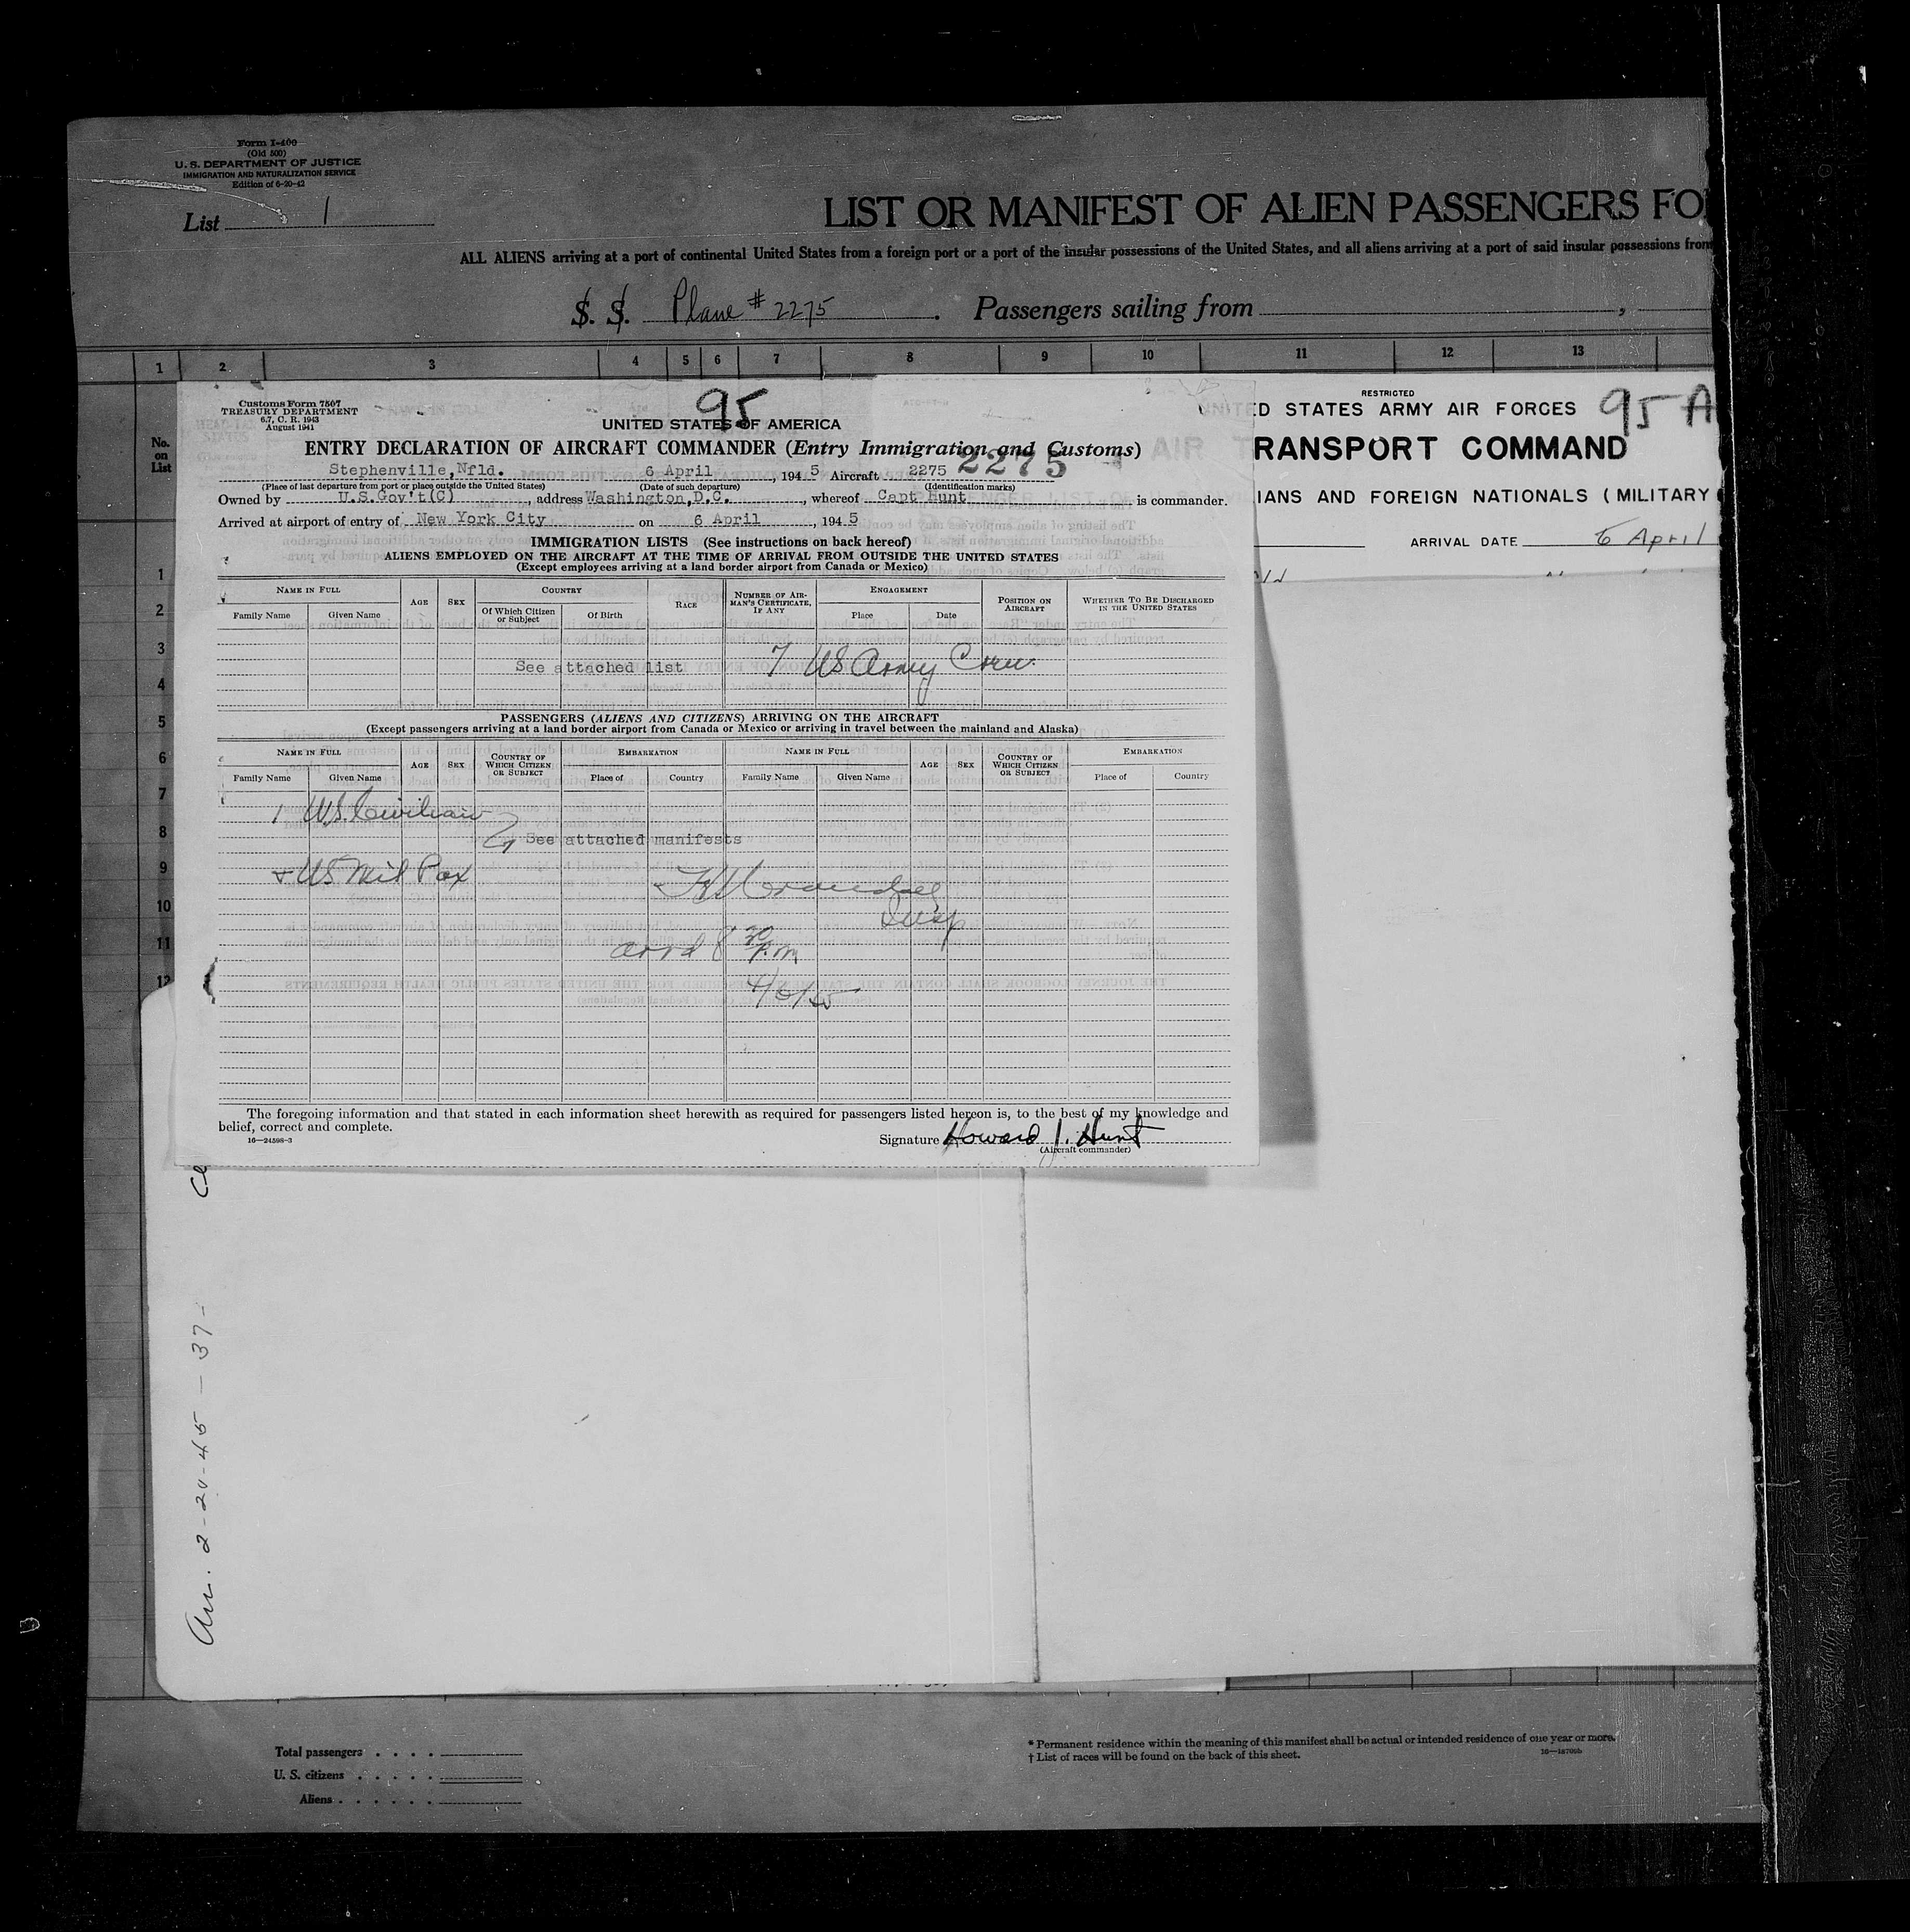 Form I-400
(Old 500)
U. S. DEPARTMENT OF JUSTICE
IMMIGRATION AND NATURALIZATION SERVICE
Edition of 6-20-42
List 1
LIST OR MANIFEST OF ALIEN PASSENGERS FO
ALL ALIENS arriving at a port of continental United States from a foreign port or a port of the insular possessions of the United States, and all aliens arriving at a port of said insular possessions from
S. S. Plane # 2275 . Passengers sailing from ,
1 2 3 4 5 6 7 8 9 10 11 12 13
No. on List
1
2
3
4
5
6
7
8
9
10
11
12
Customs Form 7507
TREASURY DEPARTMENT
6.7, C. R. 1943
August 1941
95
UNITED STATES OF AMERICA
ENTRY DECLARATION OF AIRCRAFT COMMANDER (Entry Immigration and Customs)
Stephenville, Nfld. 6 April , 194 5 Aircraft 2275 2275
(Place of last departure from port or place outside the United States) (Date of such departure) (Identification marks)
Owned by U.S.Gov't(C) , address Washington,D.C. , whereof Capt Hunt is commander.
Arrived at airport of entry of New York City on 6 April , 194 5
IMMIGRATION LISTS (See instructions on back hereof)
ALIENS EMPLOYED ON THE AIRCRAFT AT THE TIME OF ARRIVAL FROM OUTSIDE THE UNITED STATES
(Except employees arriving at a land border airport from Canada or Mexico)
NAME IN FULL AGE SEX COUNTRY RACE NUMBER OF AIRMAN'S CERTIFICATE, IF ANY ENGAGEMENT POSITION ON AIRCRAFT WHETHER TO BE DISCHARGED IN THE UNITED STATES
Family Name Given Name Of Which Citizen or Subject Of Birth Place Date
See attached list 7 US Army Crew.
PASSENGERS (ALIENS AND CITIZENS) ARRIVING ON THE AIRCRAFT
(Except passengers arriving at a land border airport from Canada or Mexico or arriving in travel between the mainland and Alaska)
NAME IN FULL AGE SEX COUNTRY OF WHICH CITIZEN OR SUBJECT EMBARKATION NAME IN FULL AGE SEX COUNTRY OF WHICH CITIZEN OR SUBJECT EMBARKATION
Family Name Given Name Place of Country Family Name Given Name Place of Country
1 U.S. Civilian
See attached manifests
+ US Mil Pax
Insp
arrd 8 30 P.m.
4/6/45
The foregoing information and that stated in each information sheet herewith as required for passengers listed hereon is, to the best of my knowledge and
belief, correct and complete.
16—24598-3
Signature Howard J. Hunt
(Aircraft commander)
RESTRICTED
UNITED STATES ARMY AIR FORCES 95 A
AIR TRANSPORT COMMAND
IANS AND FOREIGN NATIONALS ( MILITARY
ARRIVAL DATE 6 April
Total passengers
U. S. citizens
Aliens
* Permanent residence within the meaning of this manifest shall be actual or intended residence of one year or more.
† List of races will be found on the back of this sheet.